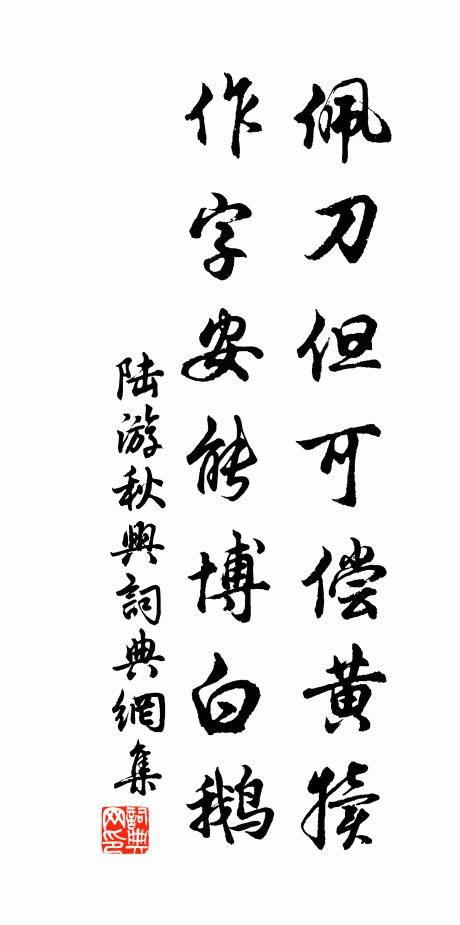 佩刀但可偿黄犊
作字安能博白鹅
陆游秋興詞典網集
詞典网印